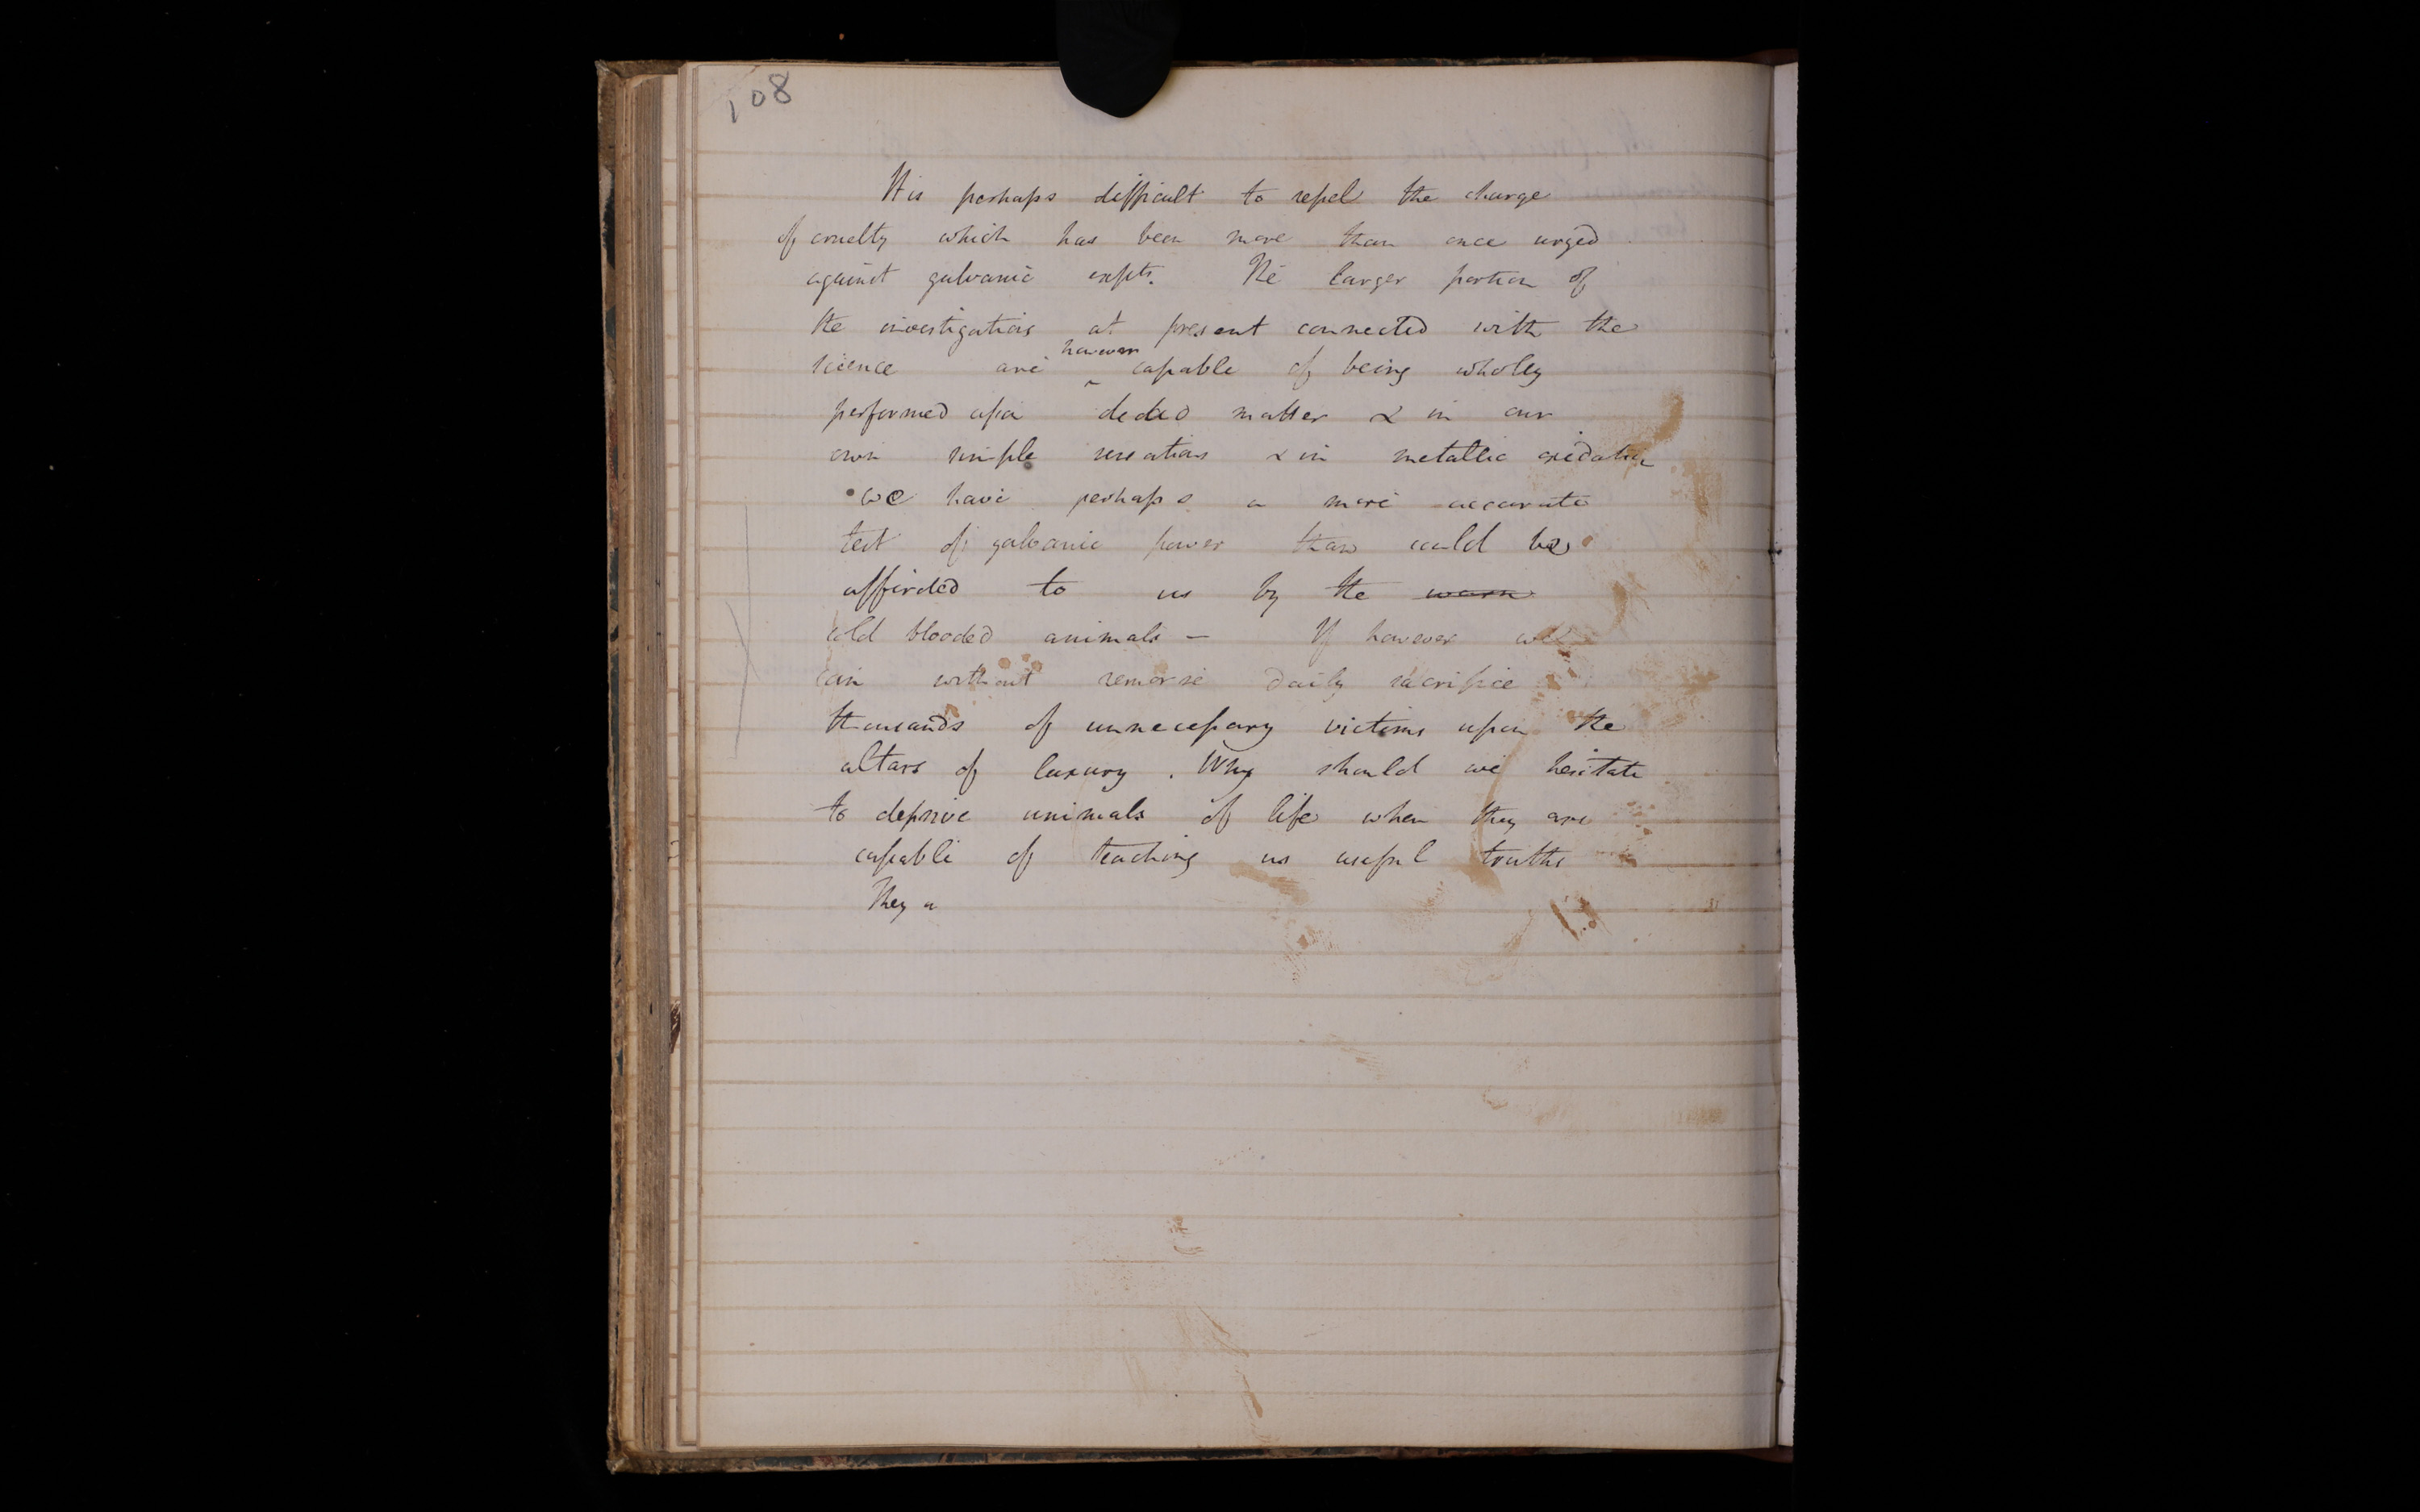 108
It is perhaps difficult to repel the charge
of cruelty which has been more than once urged
against galvanic expts. The larger portion of
the investigations at present connected with the
however
science are ‸ capable of being wholly
performed upon dead matter & in our
own simple sensations & in metallic oxidation
we have perhaps a more accurate
test of galvanic power than could be
afforded to us by the warm
cold blooded animals — If however we
can without remorse daily sacrifice
thousands of unnecessary victims upon the
altars of luxury. Why should we hesitate
to deprive animals of life when they are
capable of teaching us useful truths
They a